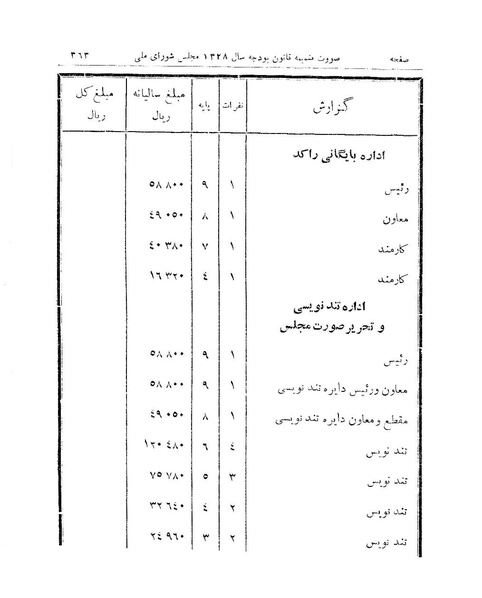 صفحه صورت ضمیمه قانون بودجه سال ۱۳۲۸ مجلس شورای ملی ۳۶۳
گزارش نفرات پایه مبلغ سالیانه ریال مبلغ کل ریال
اداره بایگانی راکد
رئیس ۱ ۹ ۵۸۸۰۰
معاون ۱ ۸ ۴۹۰۵۰
کارمند ۱ ۷ ۴۰۳۸۰
کارمند ۱ ۴ ۱۶۳۲۰
اداره تند نویسی
و تحریر صورت مجلس
رئیس ۱ ۹ ۵۸۸۰۰
معاون و رئیس دایره تند نویسی ۱ ۹ ۵۸۸۰۰
مقطع و معاون دایره تند نویسی ۱ ۸ ۴۹۰۵۰
تند نویس ۴ ۶ ۱۲۰۴۸۰
تند نویس ۳ ۵ ۷۵۷۸۰
تند نویس ۲ ۴ ۳۲۶۴۰
تند نویس ۲ ۳ ۲۴۹۶۰